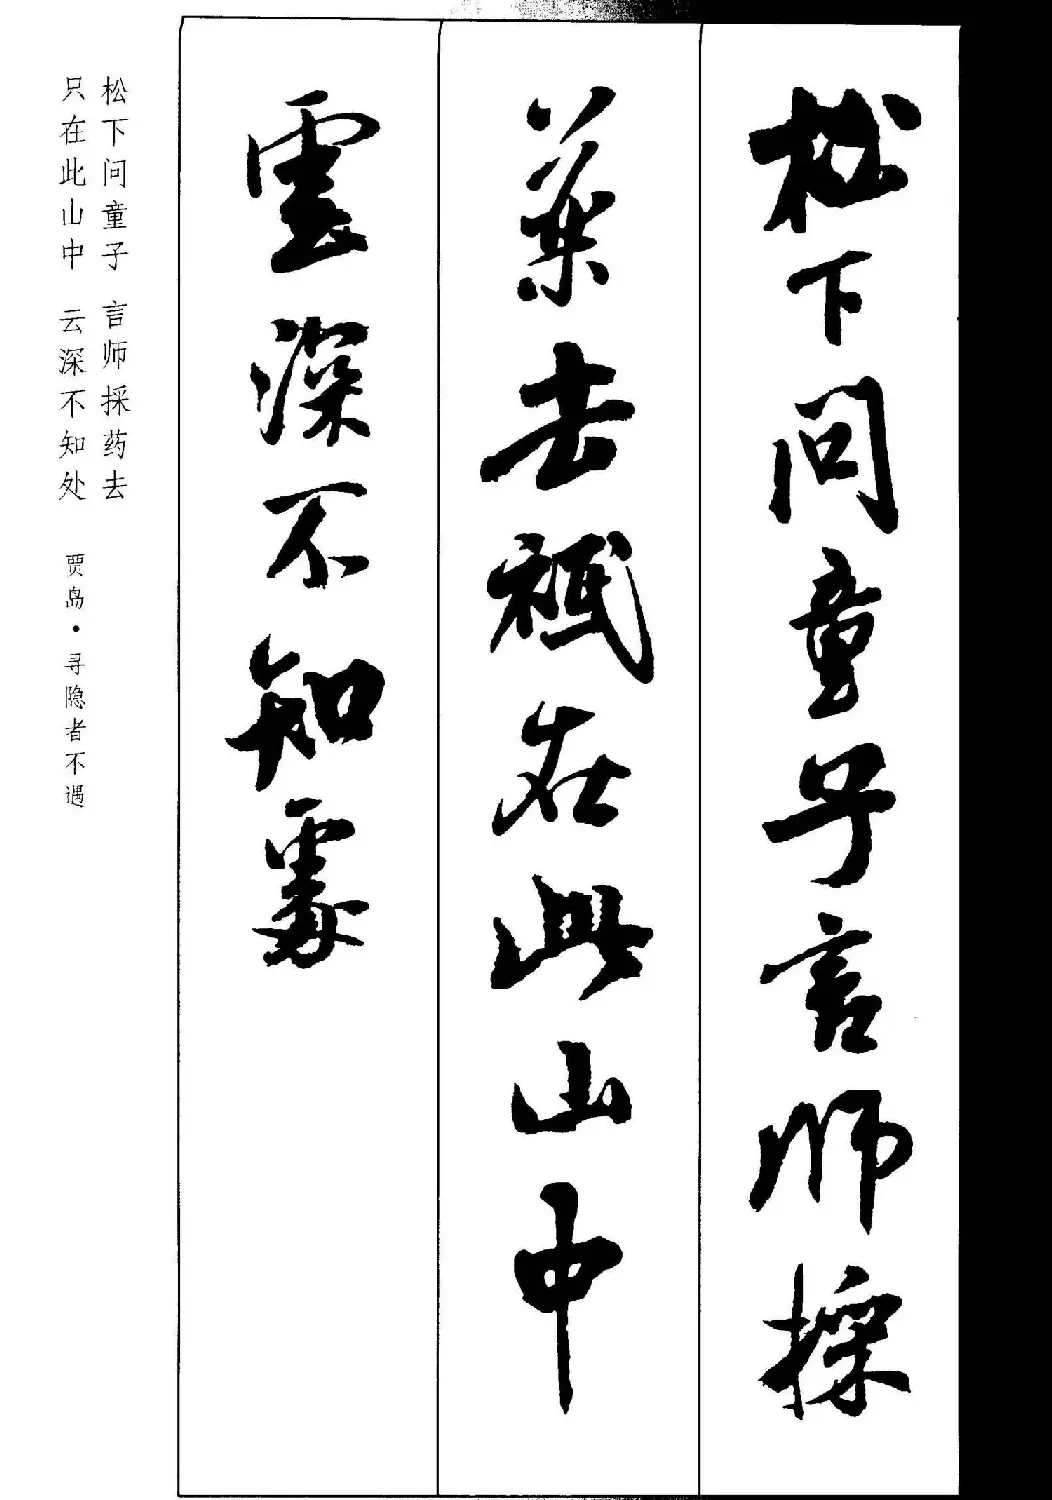 松下问童子言师採
葉去祇在此山中
雲深不知處
松下问童子 言师採药去
只在此山中 云深不知处
贾岛·寻隐者不遇